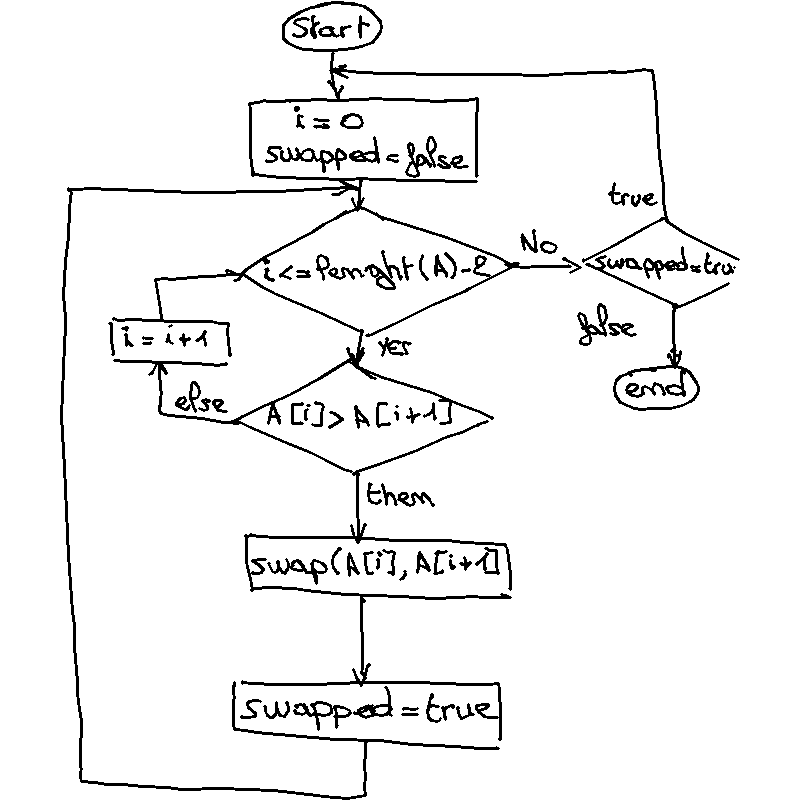 Start
i = 0
swapped = false
true
i <= lenght(A)-2
No
swapped = tru
i = i+1
yes
false
end
else
A[i] > A[i+1]
then
swap(A[i], A[i+1]
swapped = true